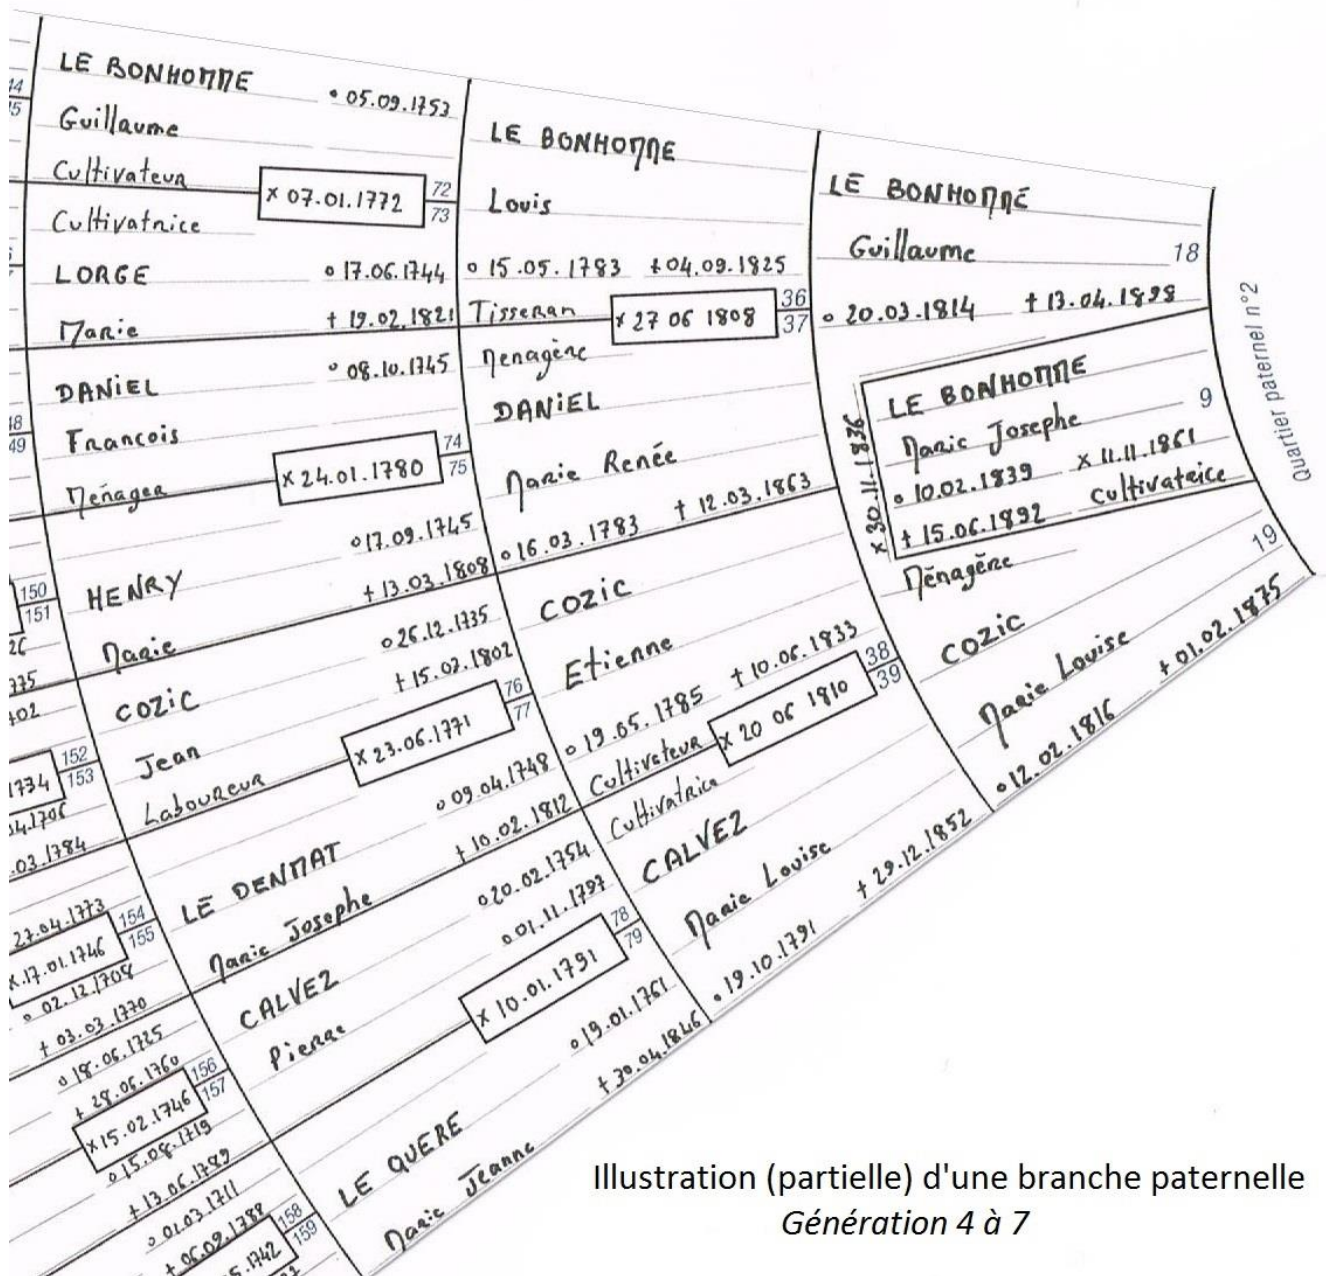 14
15
LE BONHOMME
• 05.09.1753
Guillaume
Cultivateur
x 07.01.1772
72
73
Cultivatrice
LORGE
o 17.06.1744
Marie
+ 19.02.1821
DANIEL
o 08.10.1745
Francois
Ménager
x 24.01.1780
74
75
HENRY
o 17.09.1745
Marie
+ 13.03.1808
COZIC
o 26.12.1735
Jean
+ 15.02.1802
Laboureur
x 23.06.1771
76
77
LE DENMAT
o 09.04.1748
Marie Josephe
+ 10.02.1812
CALVEZ
o 20.02.1754
Pierre
o 01.11.1797
x 10.01.1791
78
79
LE QUERE
o 19.01.1761
Marie Jeanne
+ 30.04.1846
LE BONHOMME
Louis
o 15.05.1783 + 04.09.1825
Tisseran
x 27 06 1808
36
37
Menagère
DANIEL
Marie Renée
o 16.03.1783 + 12.03.1863
COZIC
Etienne
o 19.05.1785 + 10.06.1833
Cultivateur
x 20 06 1810
38
39
Cultivatrice
CALVEZ
Marie Louise
o 19.10.1791 + 29.12.1852
LE BONHOMME
Guillaume
18
o 20.03.1814 + 13.04.1898
x 30.11.1836
LE BONHOMME
Marie Josephe
9
o 10.02.1839 x 11.11.1861
+ 15.06.1892 cultivatrice
Ménagère
19
COZIC
Marie Louise
o 12.02.1816 + 01.02.1875
Quartier paternel n°2
18
49
150
151
26
775
+02
152
1734
153
4.1706
.03.1784
27.04.1773
154
x.17.01.1746
155
o 02.12.1708
+ 03.03.1770
o 18.06.1725
+ 28.06.1760
156
x 15.02.1746
157
o 15.08.1719
+ 13.06.1789
o 01.03.1711
+ 06.09.1788
158
5.1742
159
Illustration (partielle) d'une branche paternelle
Génération 4 à 7